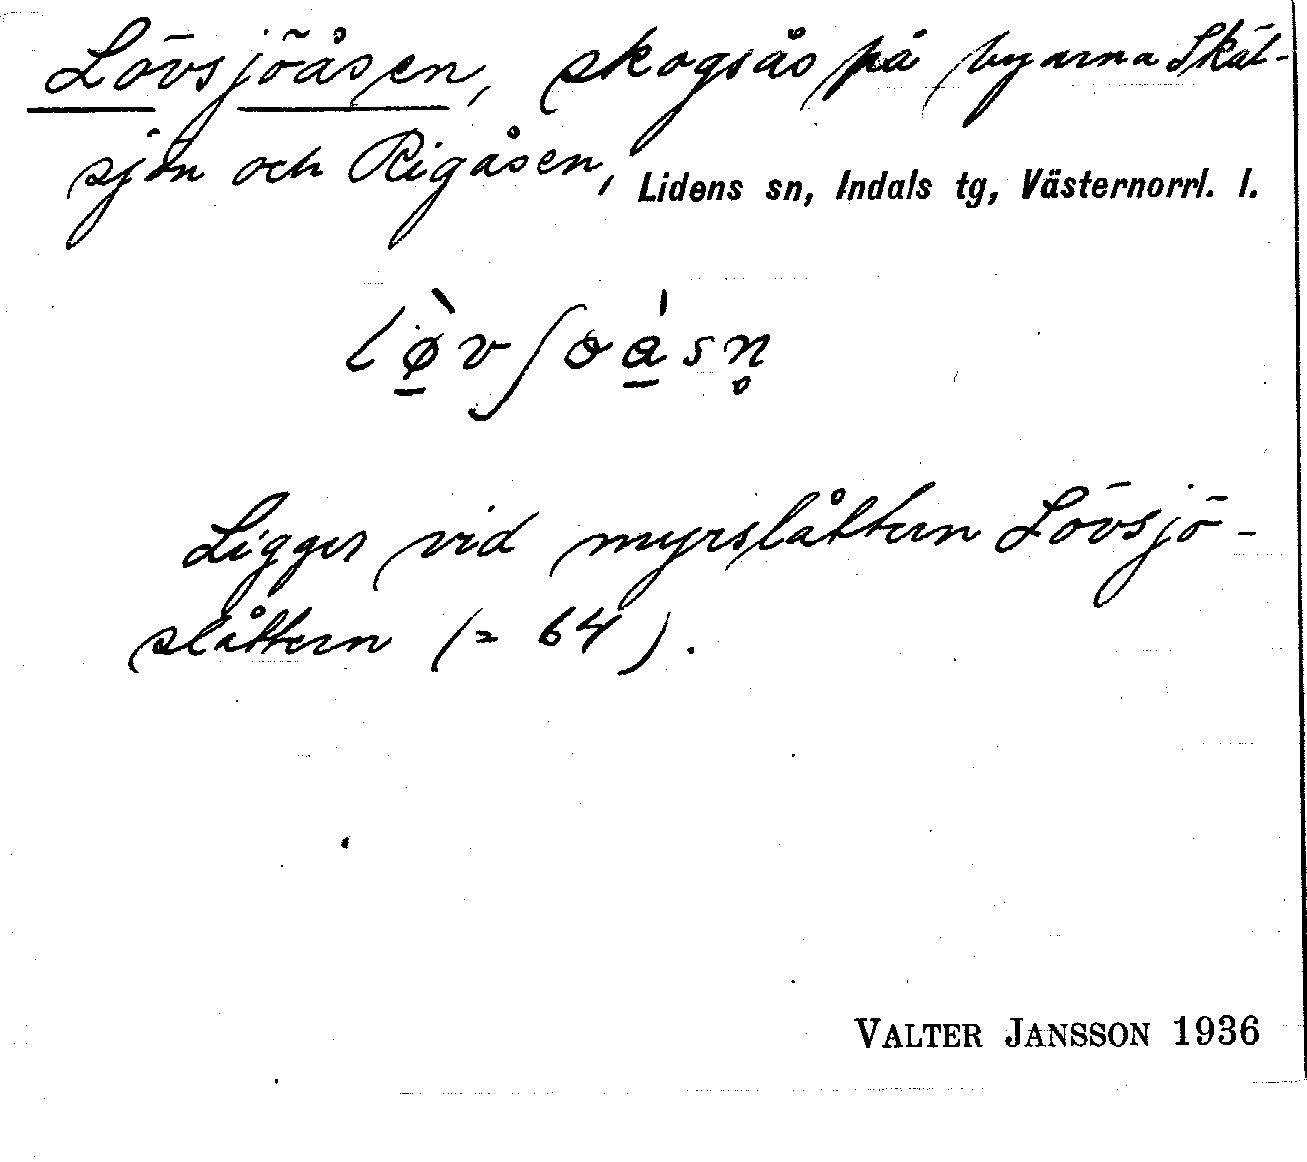 Lövsjöåsen, skogsås på byarna Skäl-
sjön och Rigåsen, Lidens sn, Indals tg, Västernorrl. l.
Ligger vid myrslåttern Lövsjö-
slåttern (= 64).
VALTER JANSSON 1936